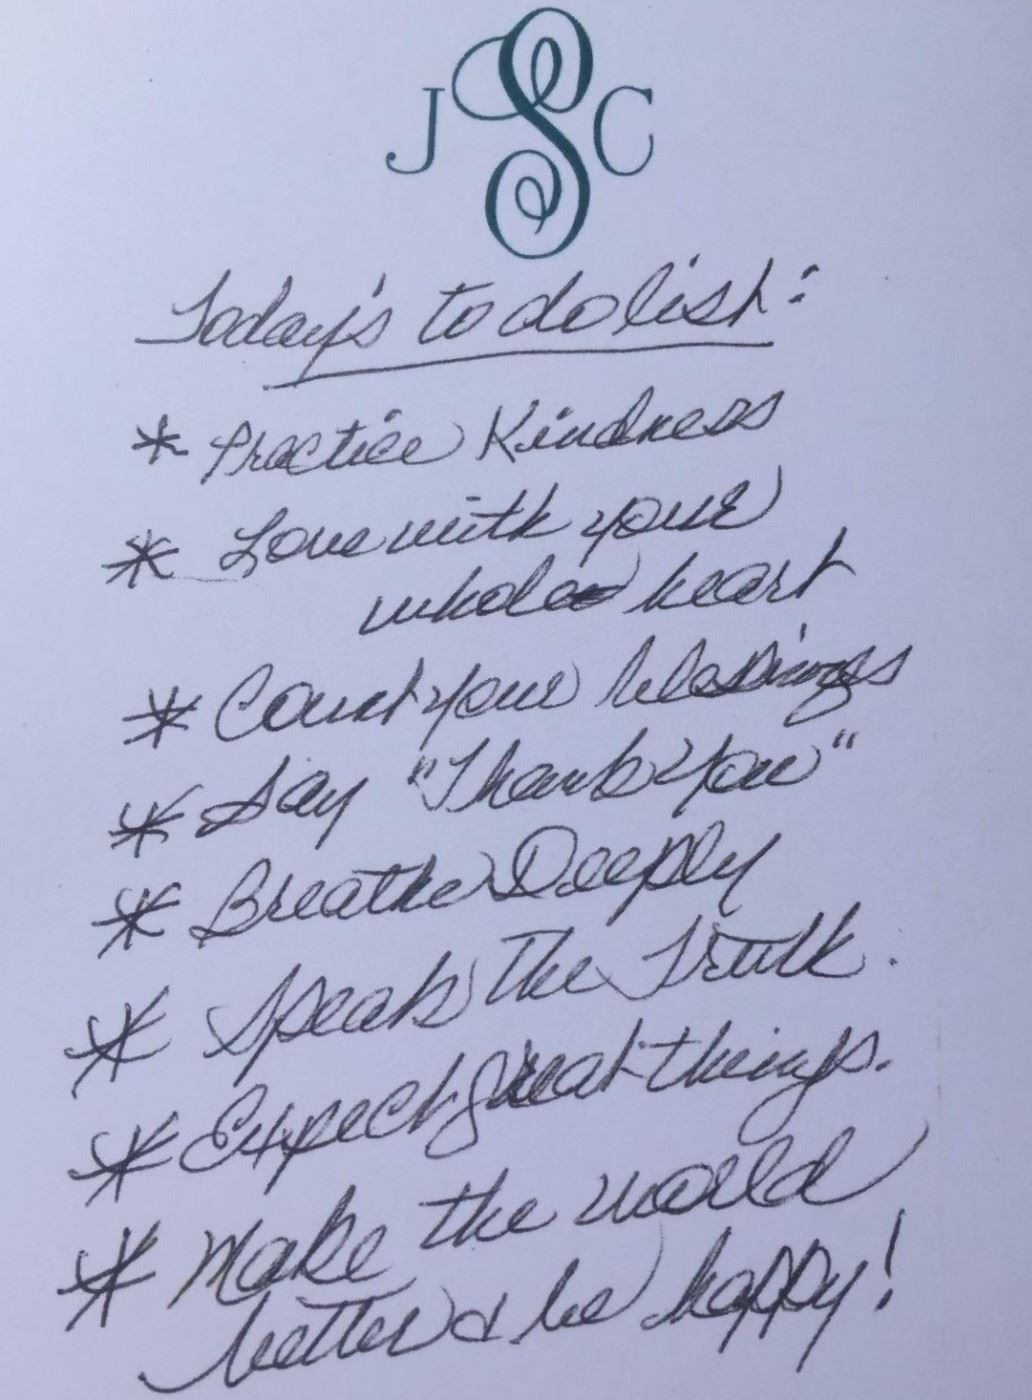 J S C
Today's to do list:
* Practice Kindness
* Love with your
whole heart
* Count your blessings
* Say "Thank you"
* Breathe Deeply
* Speak the Truth.
* Expect great things.
* Make the world
better & be happy!